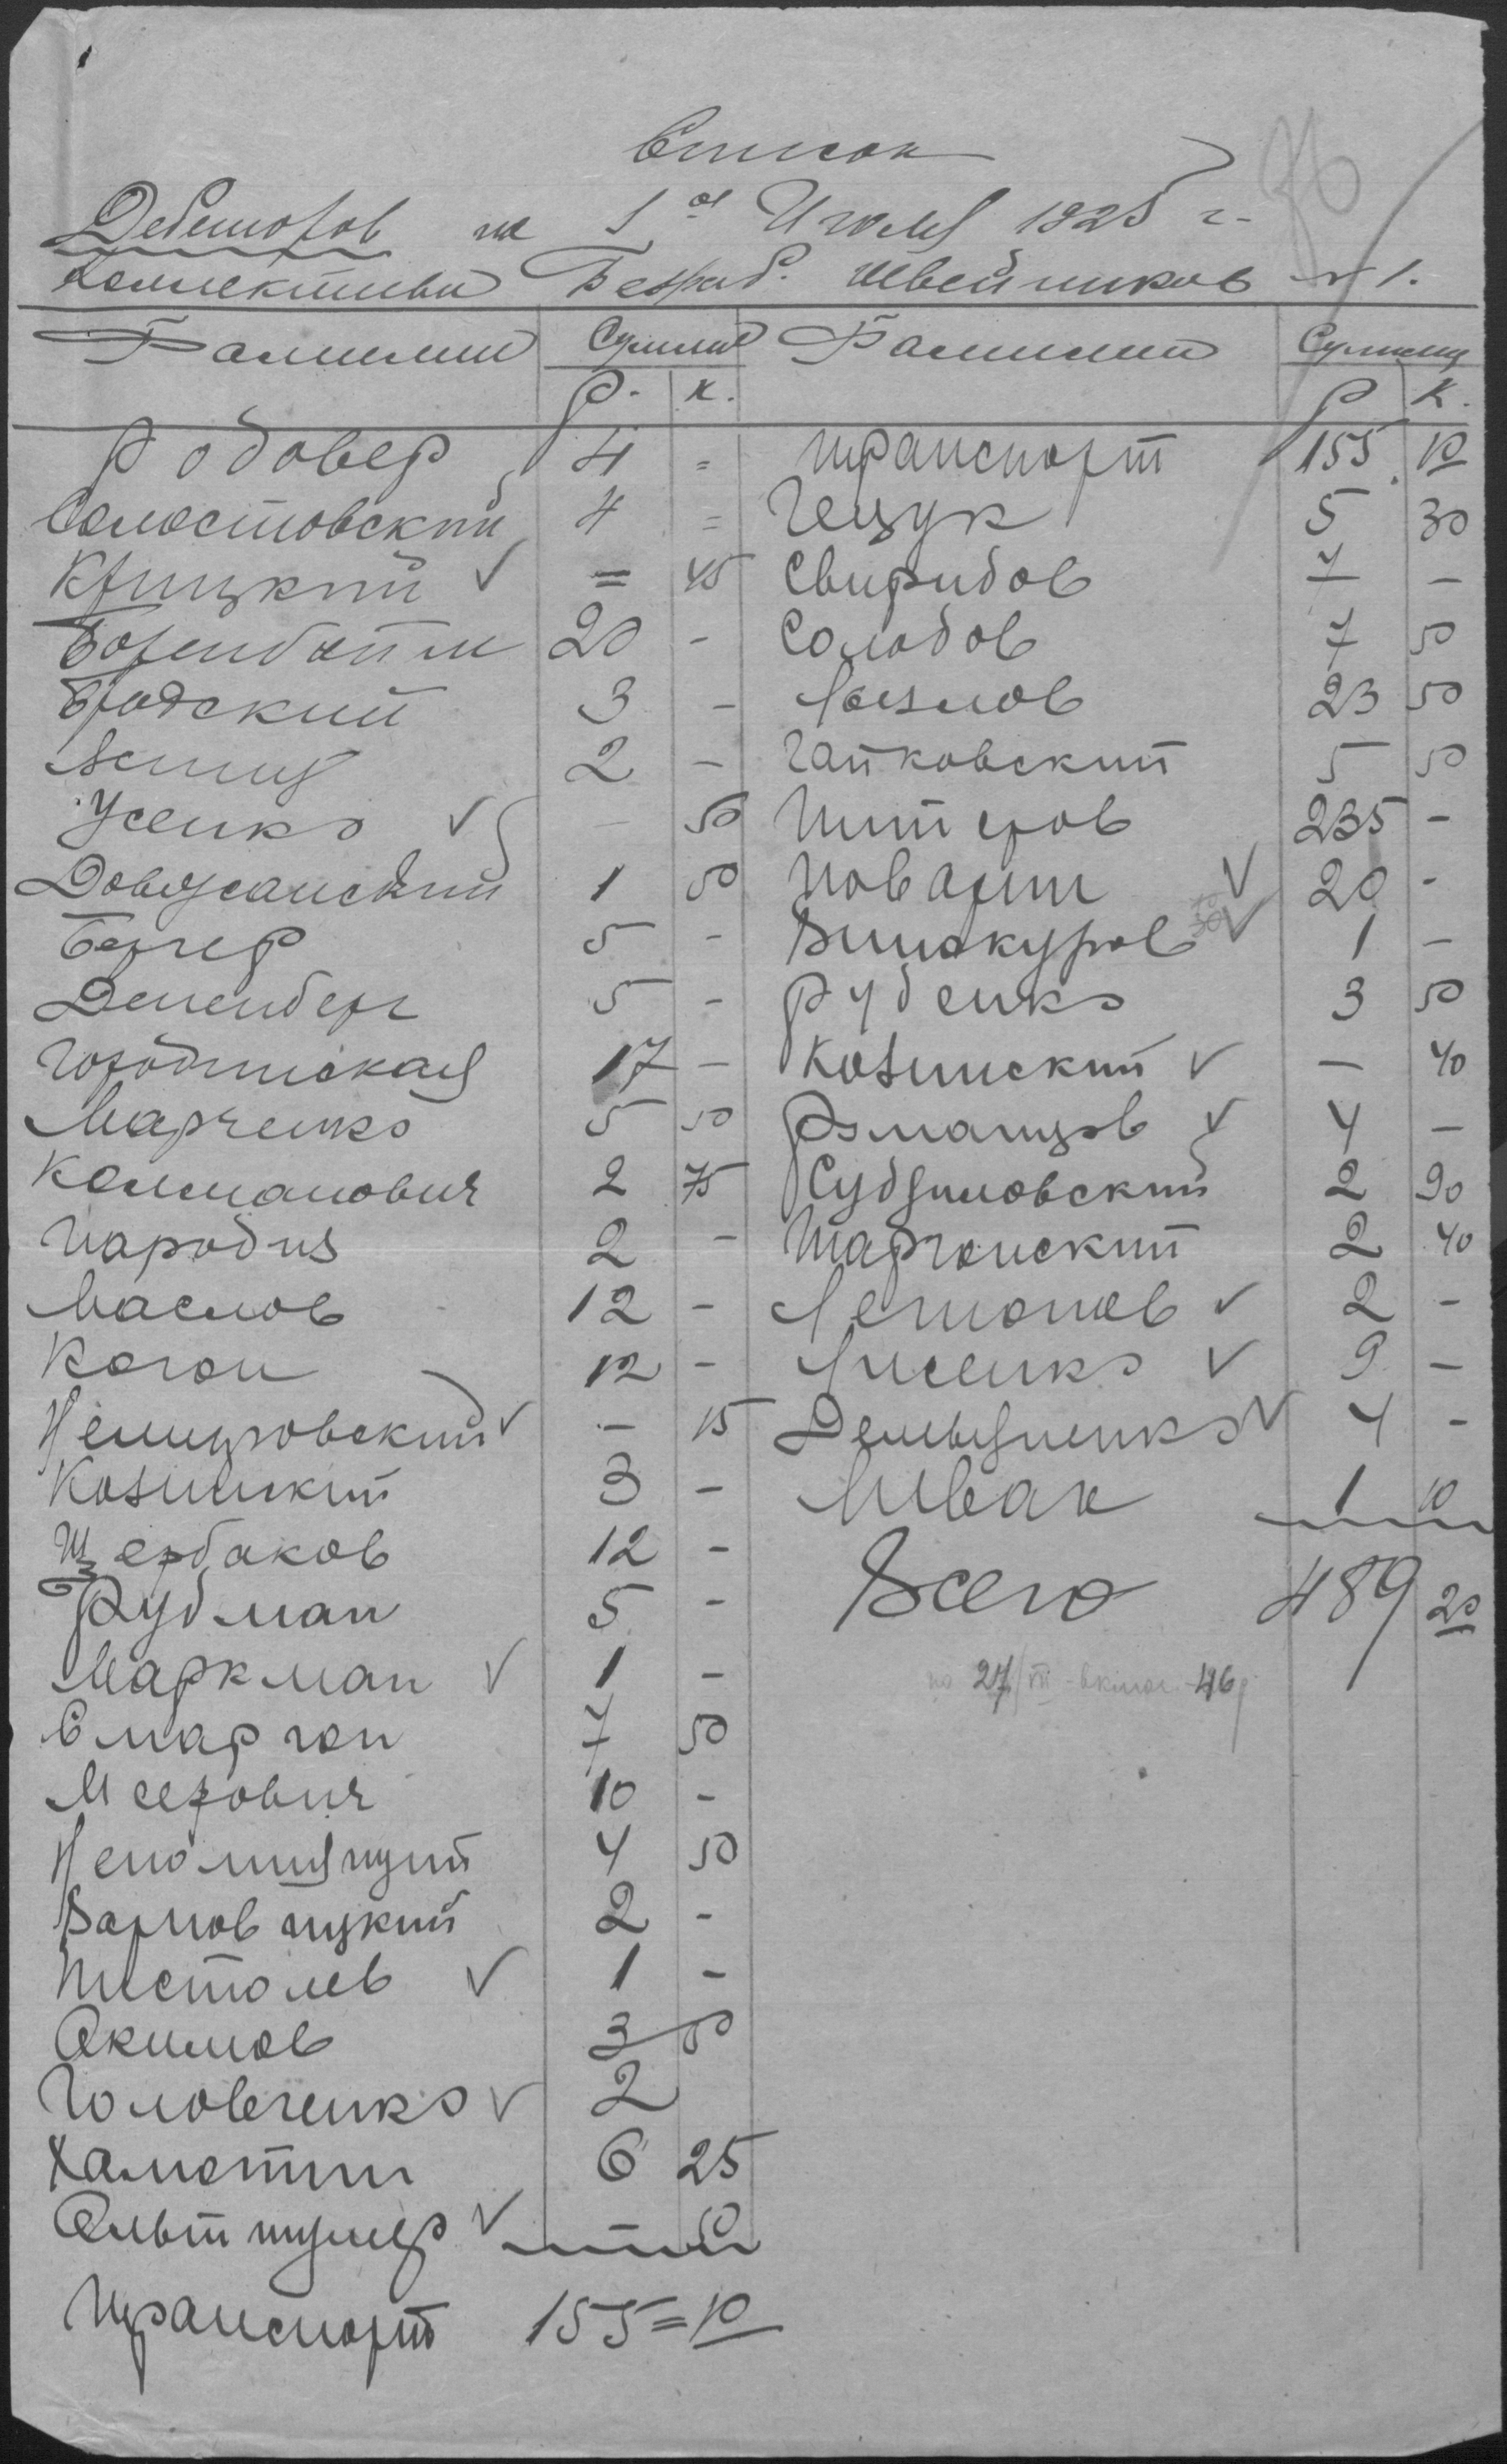 Список
Дебеторов на 1ое Июля 1925 г.
Коллектива Безраб. Швейников №1.
Фамилии Сумма Фамилии Сумма
Р. К. Р К.
Родовер 4 = транспорт 155 10
Соластовский 4 = Гецук 5 30
Крицкий ✓ = 45 Свиридов 7 —
Боренбойм 20 - Солодов 7 50
Бродский 3 - Козлов 23 50
2 - Гайковский 5 50
Усенко ✓ — 50 Питеров 235 -
Довгжанский 1 50 Поварин ✓ 20 -
Бергер 5 - Винокуров ✓ 1 —
Дененберг 5 - Руденко 3 50
Городинская 17 — Козинский ✓ — 40
Марченко 5 50 Романцов ✓ 4 —
Калманович 2 75 Судзиловский 2 90
Народиз 2 - Шаргонский 2 40
Маслов 12 - Легионов ✓ 2 -
Коган 12 - Лисенко ✓ 9 —
Немировский ✓ - 15 Демьяненко ✓ 4 -
Козинский 3 - Спивак 1 10
Щербаков 12 - Всего 489 20
Рудман 5 -
Маркман ✓ 1 - по 27/VII - включ. 46р
Смаргон 7 50
Меерович 10 -
Непомнящий 4 50
Варновицкий 2 -
Пистолев ✓ 1 -
Акимов 3 50
Головченко ✓ 2
Хамотин 6 25
Альтшулер ✓ — 50
Транспорт 155=10